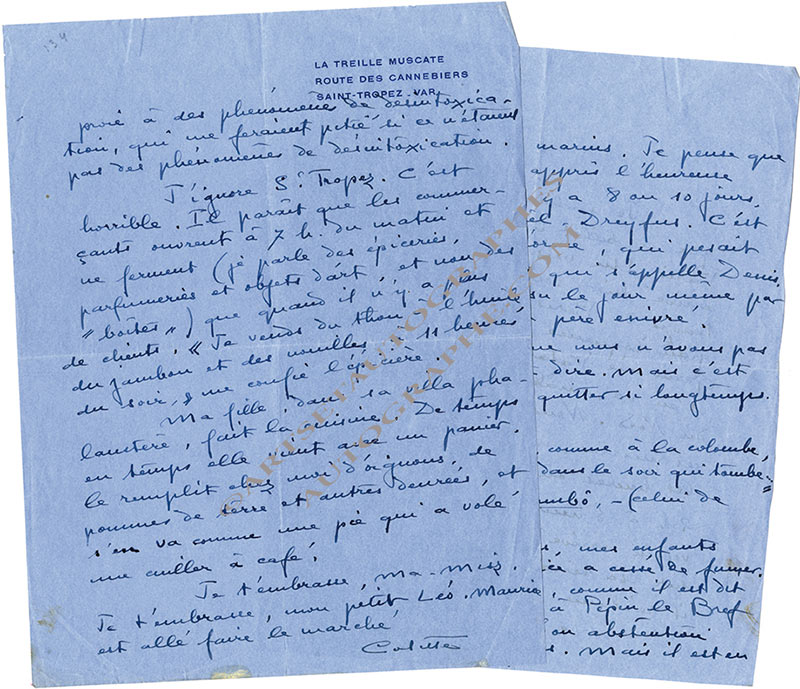 134
LA TREILLE MUSCATE
ROUTE DES CANNEBIERS
SAINT-TROPEZ . VAR.
proie à des phénomènes de désintoxica-
tion, qui me feraient pitié si ce n'étaient
pas des phénomènes de désintoxication.
J'ignore St Tropez. C'est
horrible. Il paraît que les commer-
çants ouvrent à 7 h. du matin et
ne ferment (je parle des épiceries,
parfumeries et objets d'art, et non des
"boîtes") que quand il n'y a plus
de clients. "Je vends du thon à l'huile
du jambon et des nouilles à 11 heures
du soir," me confie l'épicière.
Ma fille, dans sa villa pha-
lanstère, fait la cuisine. De temps
en temps elle vient avec un panier,
le remplit chez moi d'oignons, de
pommes de terre et autres denrées, et
s'en va comme une pie qui a volé
une cuiller à café.
Je t'embrasse, ma Misz.
Je t'embrasse, mon petit Léo. Maurice
est allé faire le marché.
Colette
marins. Je pense que
appris l'heureuse
y a 8 ou 10 jours,
el-Dreyfus. C'est
qui pesait
qui s'appelle Denis,
le jour même par
père enivré.
ne nous n'avons pas
dire. Mais c'est
quitter si longtemps.
comme à la colombe,
dans le soir qui tombe"
ambô, - (celui de
, mes enfants
ice a cessé de fumer.
, comme il est dit
à Pépin le Bref
on abstention
s. Mais il est en
©ARTSETAUTOGRAPHES
AUTOGRAPHE.COM